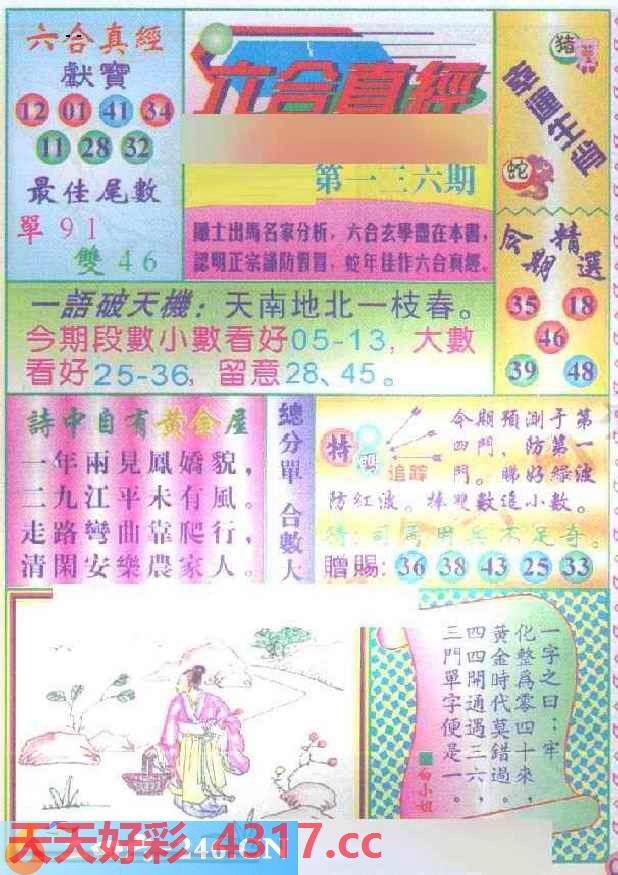 六合真經
獻寶
12 01 41 34
11 28 32
最佳尾數
單 91
雙 46
六合真經
第一三六期
隱士出馬名家分析，六合玄學盡在本書，
認明正宗謹防假冒，蛇年佳作六合真經。
豬
蛇
今期精選
35 18
46
39 48
一語破天機：天南地北一枝春。
今期段數小數看好05-13，大數
看好25-36，留意28、45。
詩中自有黃金屋
一年兩見鳳嬌貌，
二九江平未有風。
走路彎曲靠爬行，
清閑安樂農家人。
總分單 合數大
特
追踪
今期預測于第
四門，防第一
門。睇好綠波
防紅波。捧雙數追小數。
猜：司馬用兵不足奇。
贈賜：36 38 43 25 33
一字之曰：牢
化整為零四十來，
黃金時代莫錯過。
四四開通遇三六，
三門單字便是一。
白小姐
天天好彩 4317.cc